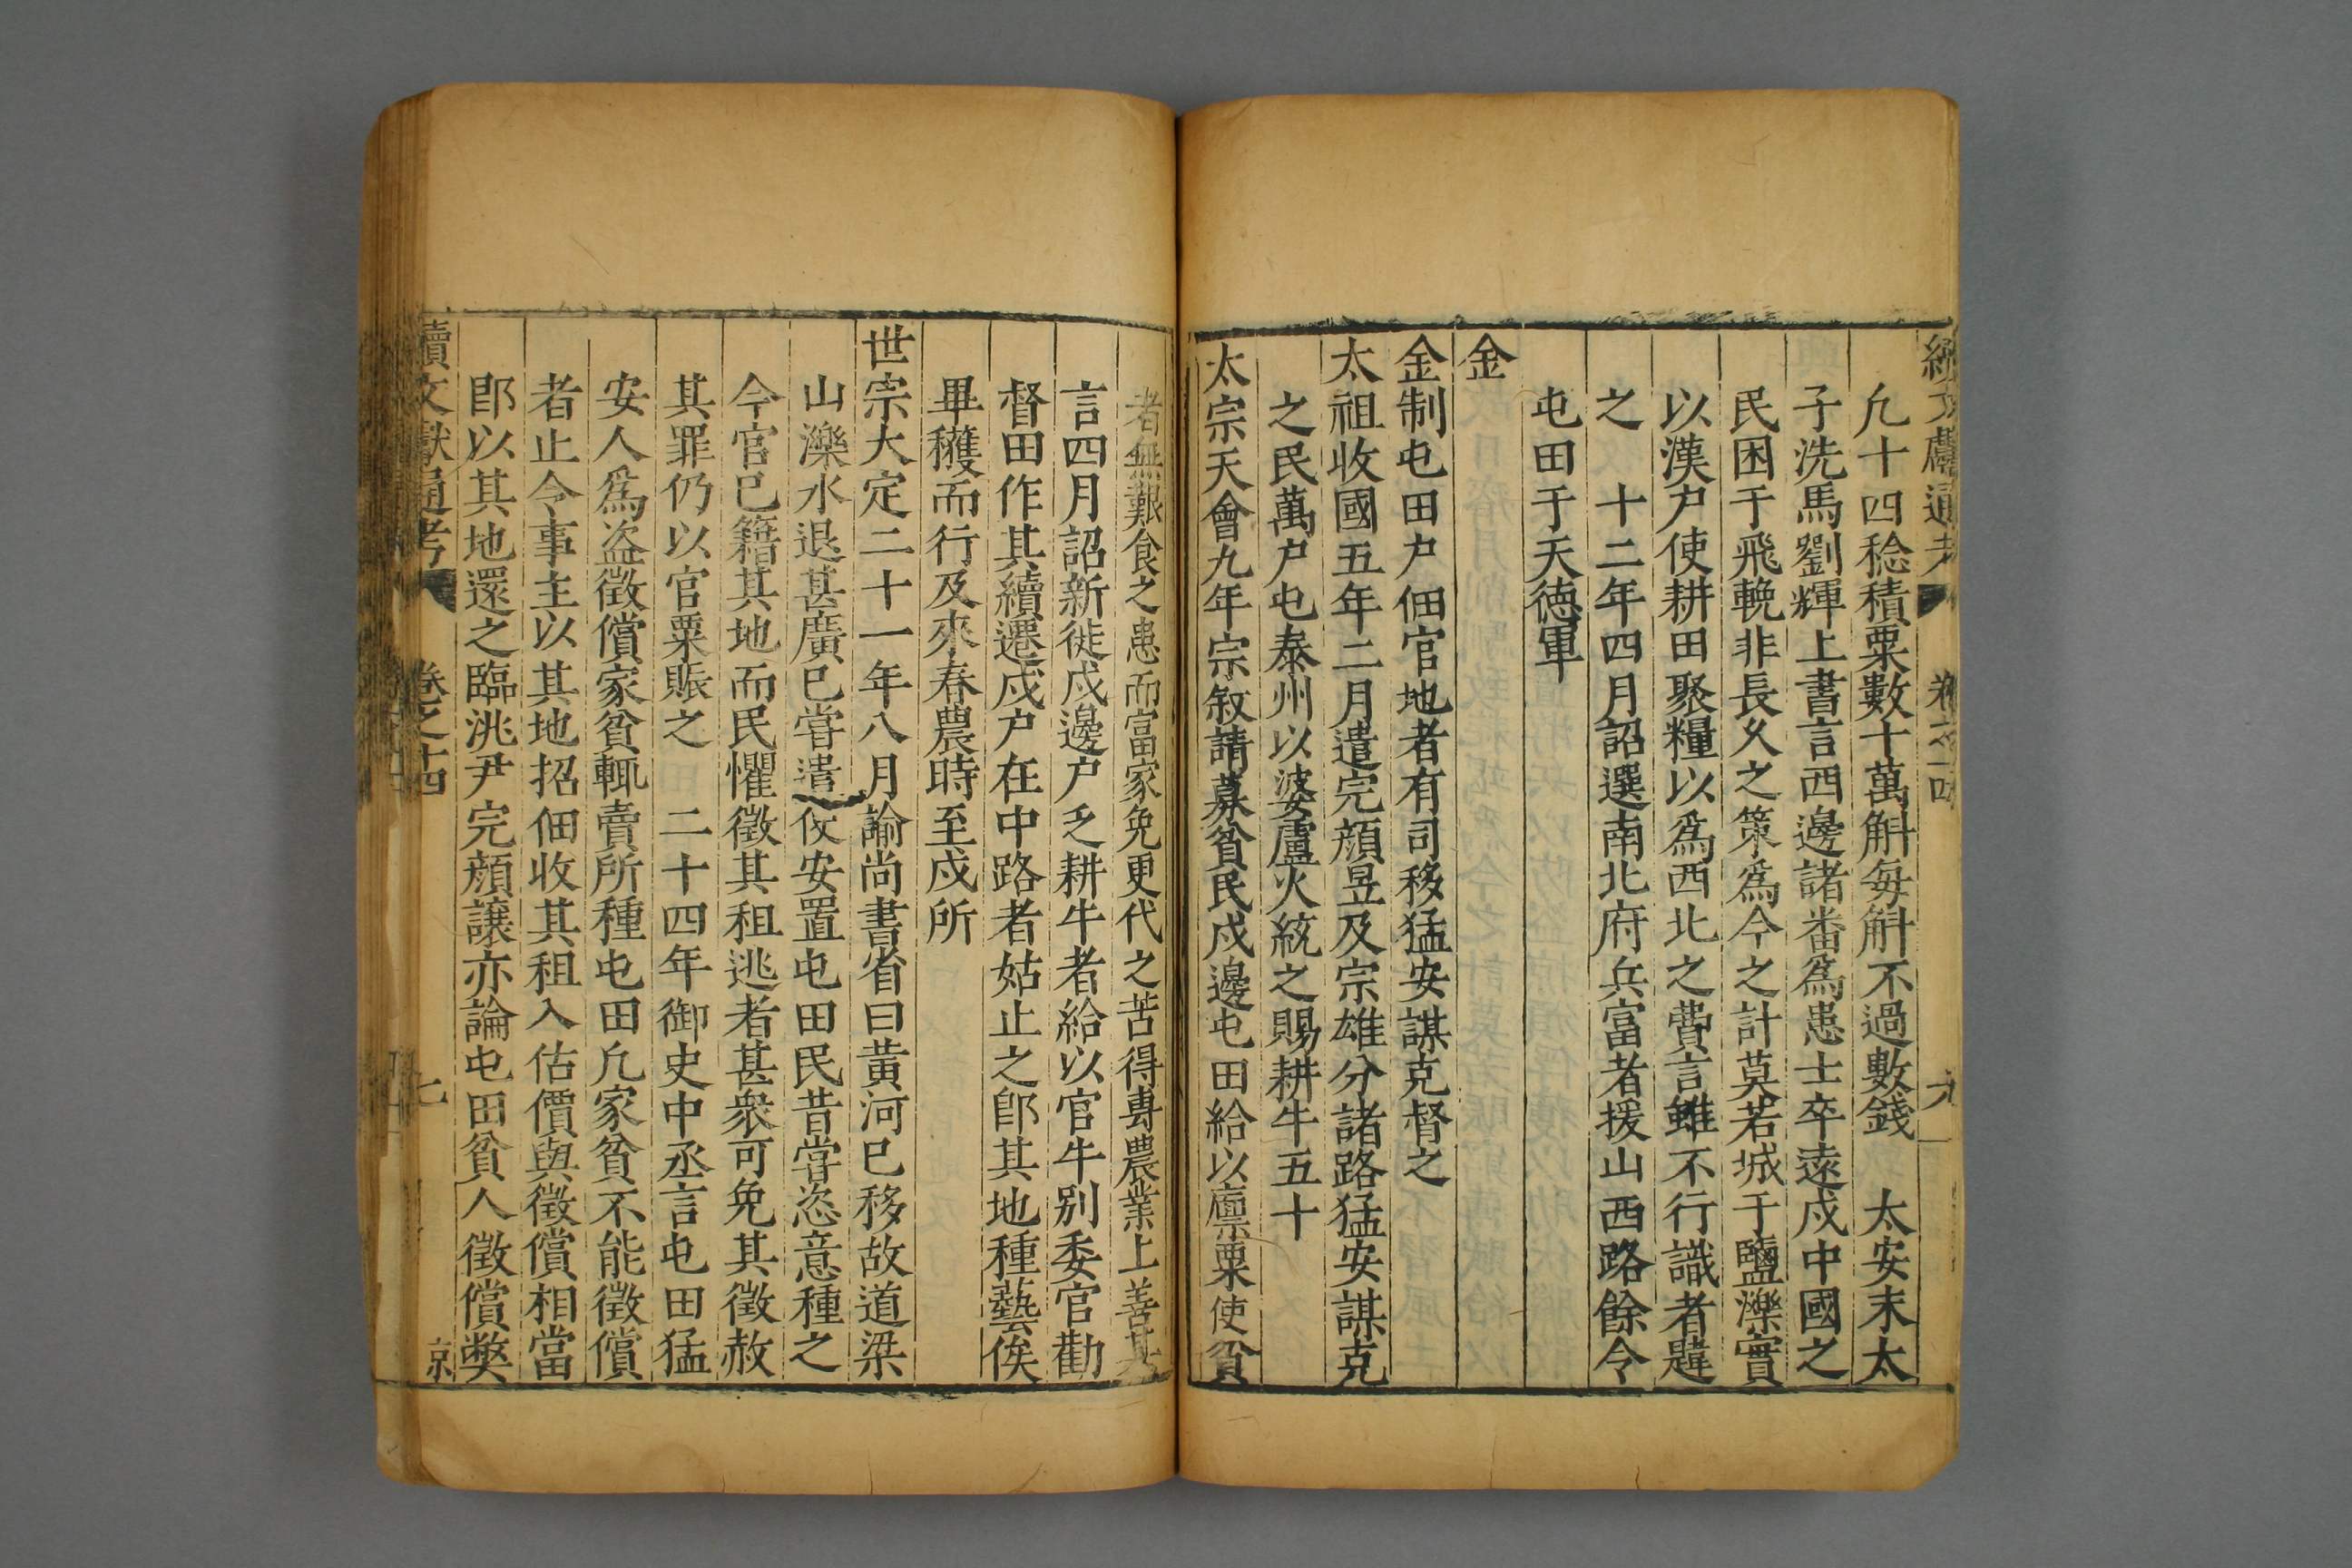 續文獻通考 卷之十四 六
凡十四稔積粟數十萬斛每斛不過數錢 太安末太
子洗馬劉輝上書言西邊諸番爲患士卒遠戍中國之
民困于飛輓非長久之策爲今之計莫若城于鹽濼實
以漢户使耕田聚糧以爲西北之費言雖不行識者韙
之 十二年四月詔選南北府兵富者援山西路餘令
屯田于天德軍
金
金制屯田户佃官地者有司移猛安謀克督之
太祖收國五年二月遣完顏昱及宗雄分諸路猛安謀克
之民萬户屯泰州以婆盧火統之賜耕牛五十
太宗天會九年宗敘請募貧民戍邊屯田給以廪粟使貧
者無艱食之患而富家免更代之苦得專農業上善其
言四月詔新徙戍邊户乏耕牛者給以官牛别委官勸
督田作其續遷戍户在中路者姑止之卽其地種藝俟
畢穫而行及來春農時至戍所
世宗大定二十一年八月諭尚書省曰黄河已移故道梁
山濼水退甚廣已嘗遣使安置屯田民昔嘗恣意種之
今官已籍其地而民懼徵其租逃者甚衆可免其徵赦
其罪仍以官粟賑之 二十四年御史中丞言屯田猛
安人爲盗徵償家貧輒賣所種屯田凡家貧不能徵償
者止令事主以其地招佃收其租入估價與徵償相當
卽以其地還之臨洮尹完顏讓亦論屯田貧人徵償弊
續文獻通考 卷之十四 七 京